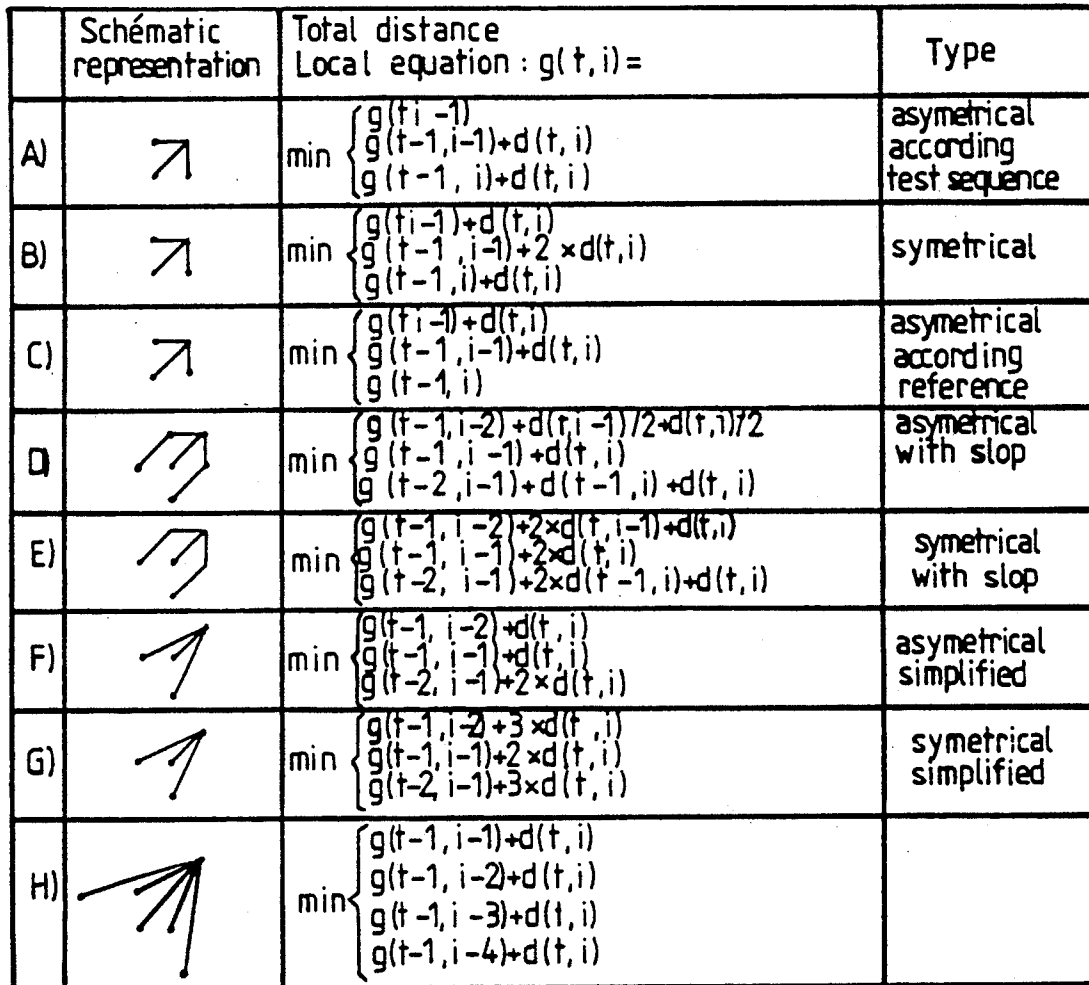 Schématic
representation
Total distance
Local equation : g(t,i)=
Type
A)
min
g(ti-1)
g(t-1,i-1)+d(t,i)
g(t-1, i)+d(t,i)
asymetrical
according
test sequence
B)
min
g(ti-1)+d(t,i)
g(t-1,i-1)+2×d(t,i)
g(t-1,i)+d(t,i)
symetrical
C)
min
g(ti-1)+d(t,i)
g(t-1,i-1)+d(t,i)
g(t-1, i)
asymetrical
according
reference
D)
min
g(t-1,i-2)+d(t,i-1)/2+d(t,i)/2
g(t-1,i-1)+d(t,i)
g(t-2,i-1)+d(t-1,i)+d(t,i)
asymetrical
with slop
E)
min
g(t-1, i-2)+2×d(t,i-1)+d(t,i)
g(t-1, i-1)+2×d(t,i)
g(t-2, i-1)+2×d(t-1,i)+d(t,i)
symetrical
with slop
F)
min
g(t-1, i-2)+d(t,i)
g(t-1, i-1)+d(t,i)
g(t-2, i-1)+2×d(t,i)
asymetrical
simplified
G)
min
g(t-1,i-2)+3×d(t,i)
g(t-1,i-1)+2×d(t,i)
g(t-2,i-1)+3×d(t,i)
symetrical
simplified
H)
min
g(t-1,i-1)+d(t,i)
g(t-1, i-2)+d(t,i)
g(t-1,i-3)+d(t,i)
g(t-1,i-4)+d(t,i)